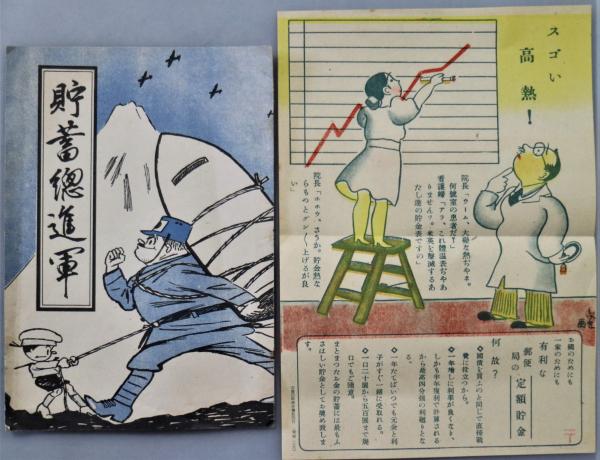 貯蓄總進軍
スゴい
高熱！
院長「ウーム、大變な熱ぢやネ。
何號室の患者だ？」
看護婦「アラ、これ體温表ぢやあ
りませんワ。米英を撃滅するあ
たし達の貯金表ですの」
院長「ホホウ、さうか。貯金熱な
らもつとグン／＼上げるが良
い」
お國のためにも
一家のためにも
有利な
郵便局の定額貯金
何故？
◇國債を買ふのと同じで直接戰
費に役立つから。
◇一年増しに利率が良くなり、
しかも半年複利で計算される
から最高四分強の利廻りとな
る。
◇一年たてばいつでも元金と利
子がすぐ一緒に受取れる。
◇一口二十圓から五百圓まで幾
口でもご隨意。
まとまつたお金の貯蓄には最もふ
さはしい貯金としてお奬め致しま
す。